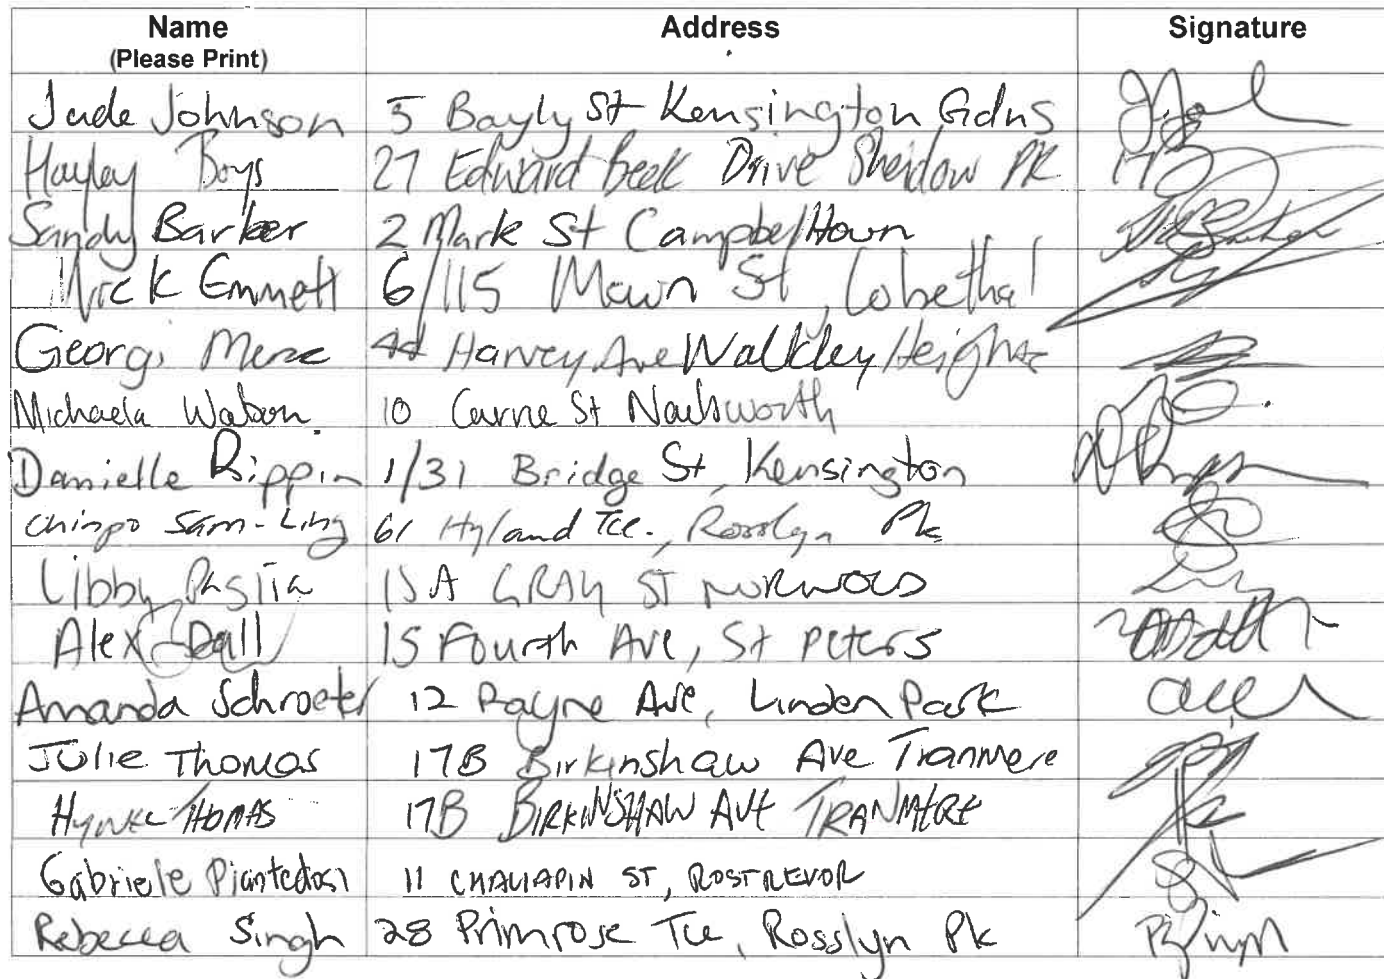 Name Address Signature
(Please Print)
Jade Johnson 5 Bayly St Kensington Gdns
Hayley Boys 27 Edward Beck Drive Sheidow Pk
Sandy Barker 2 Mark St Campbelltown
Nick Emmett 6/115 Main St, Lobethal
Georgi 44 Harvey Ave Walkley Heights
Michaela Watson 10 Carne St Nailsworth
Danielle Rippin 1/31 Bridge St, Kensington
Chinpo Sam-Ling 61 Hyland Tce., Rosslyn Pk
Libby 15A GRAY ST NORWOOD
Alex Dall 15 Fourth Ave, St Peters
Amanda Schroeter 12 Rayne Ave, Linden Park
Julie Thomas 17B Birkinshaw Ave Tranmere
THOMAS 17B BIRKINSHAW AVE TRANMERE
Gabriele Piantedosi 11 CHALIAPIN ST, ROSTREVOR
Rebecca Singh 28 Primrose Tce, Rosslyn Pk